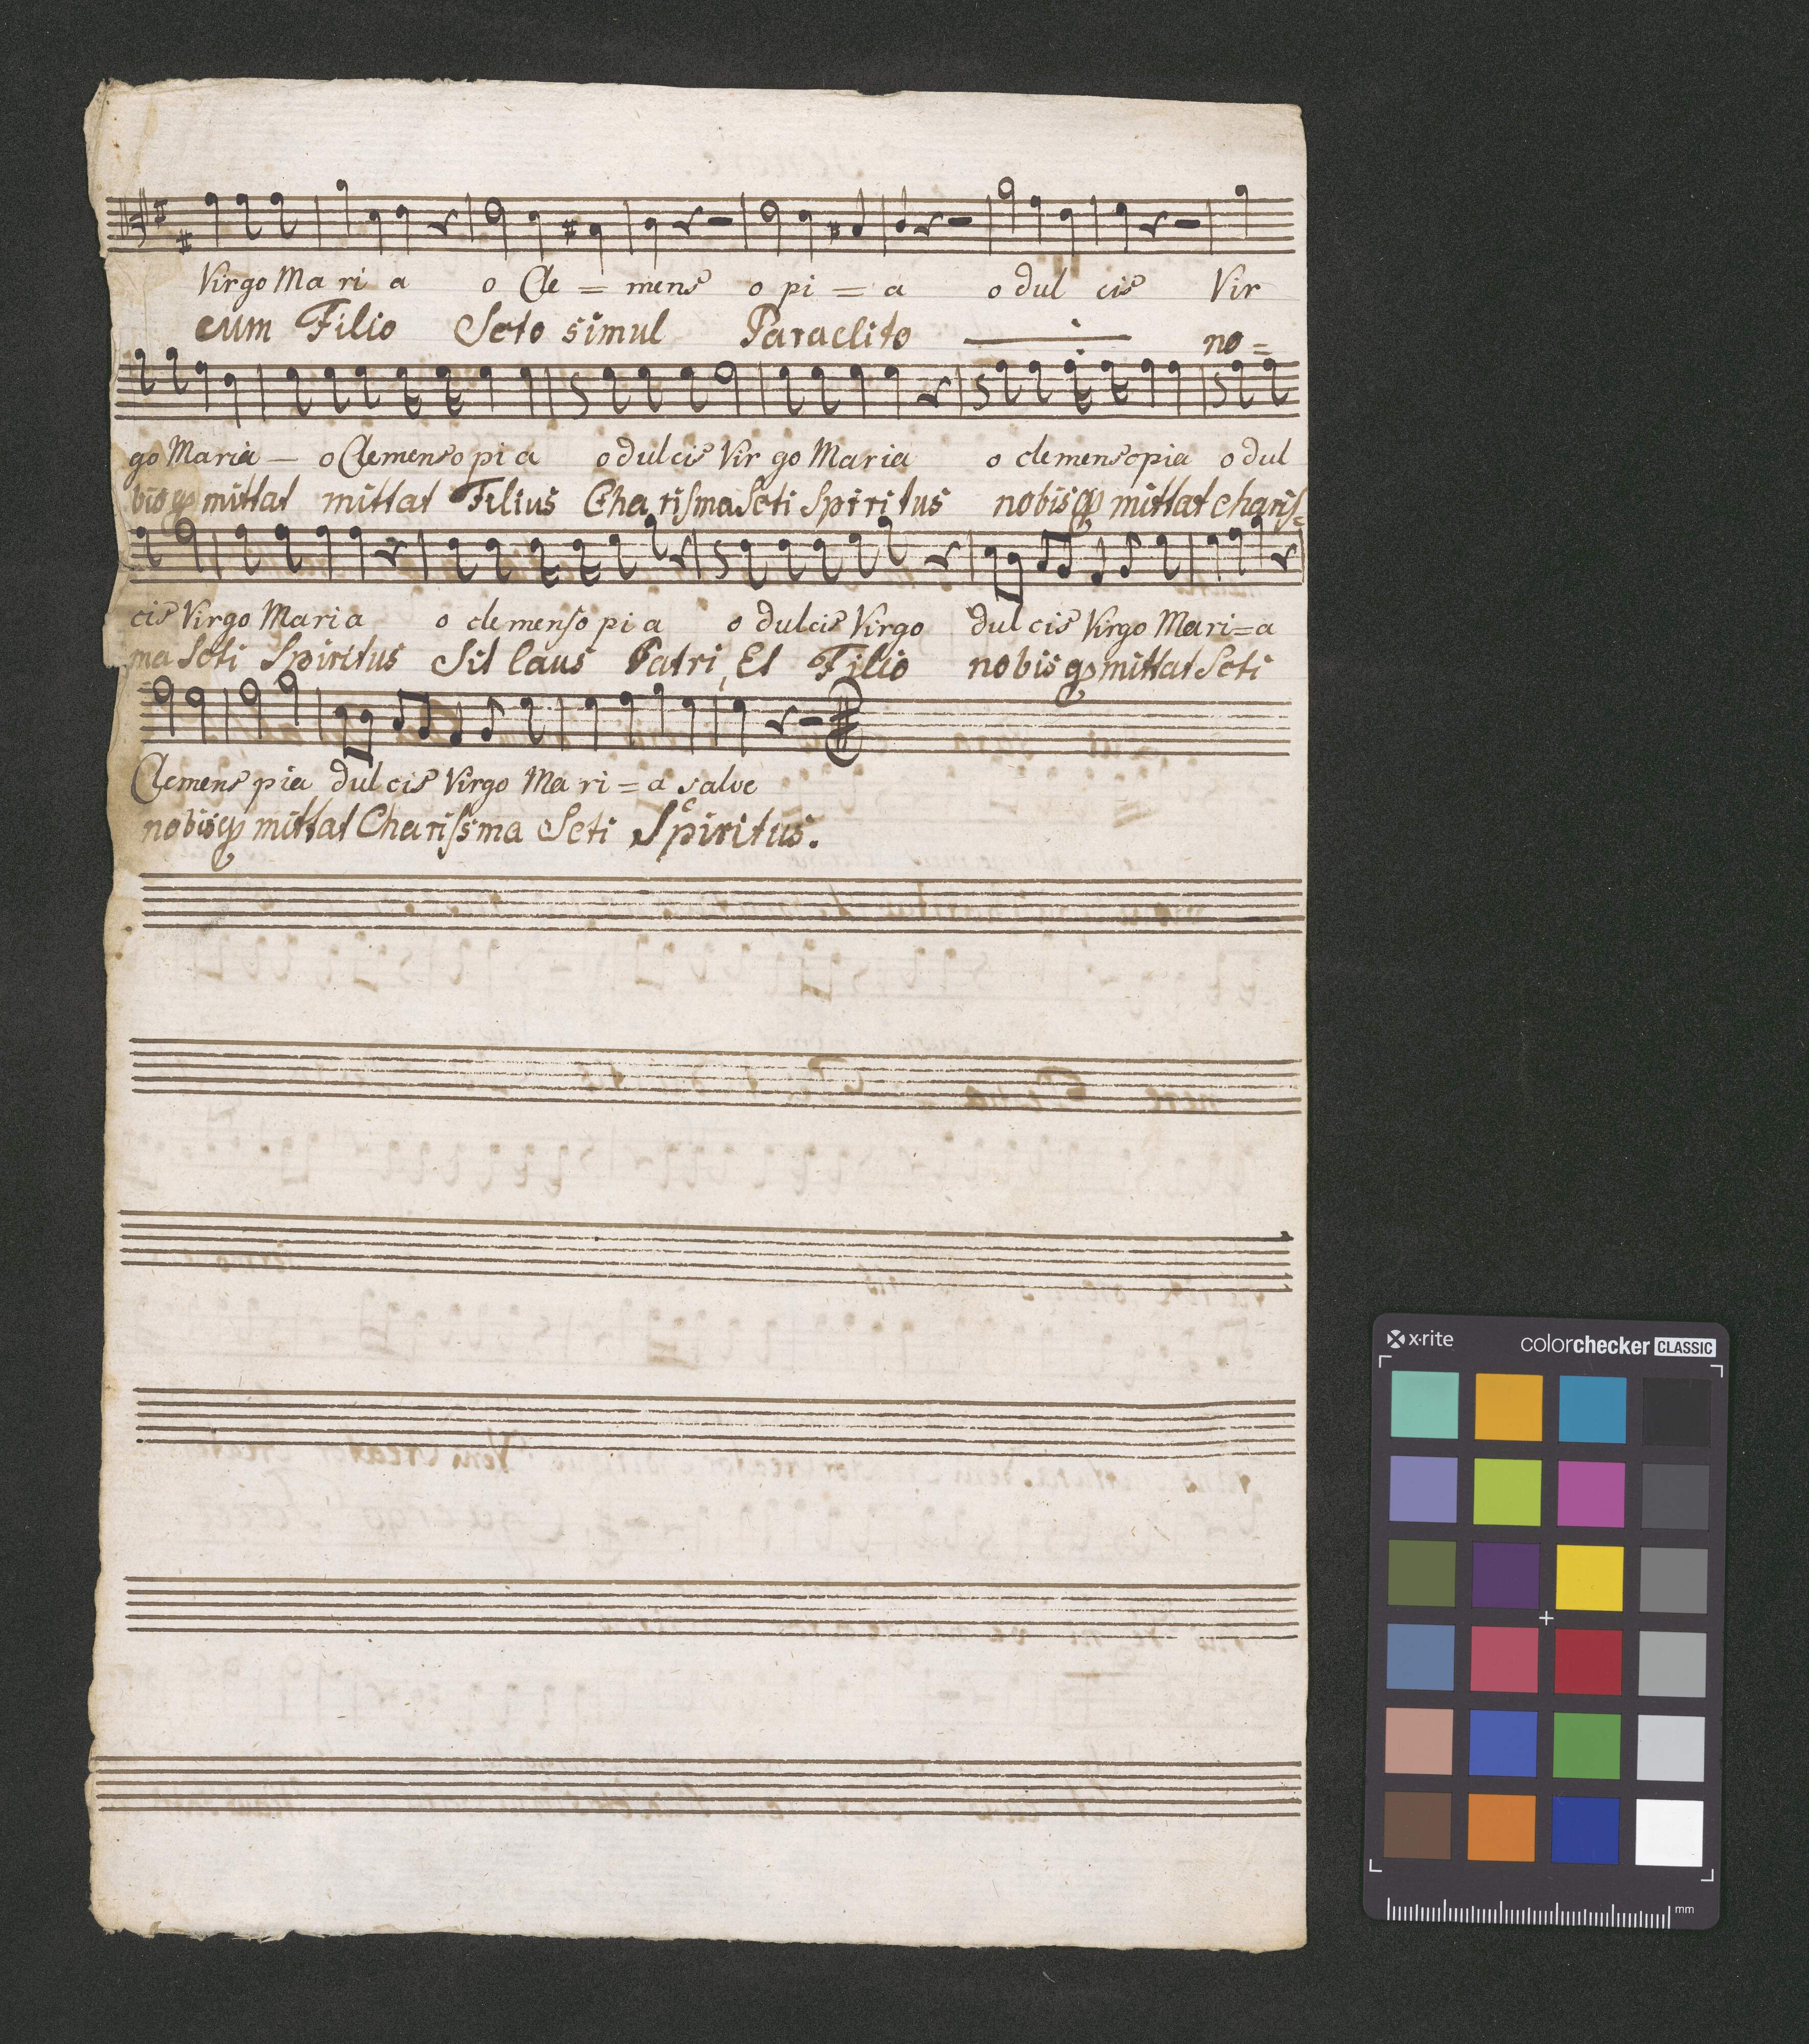 Virgo Ma ri a o Cle = mens o pi = a o dul cis Vir
cum Filio Scto simul Paraclito no=
go Maria — o Clemens o pi a o dulcis Vir go Maria o clemens o pia o dul
bisq mittat mittat Filius Cha risma Scti Spiritus nobisq mittat charis=
cis Virgo Maria o clemens o pi a o dulcis Virgo dul cis Virgo Mari=a
ma Scti Spiritus Sit laus Patri, Et Filio nobisq mittat Scti
Clemens pia dul cis Virgo Ma ri = a salve
nobisq mittat Charissma Scti Spiritus.
x·rite colorchecker CLASSIC
mm